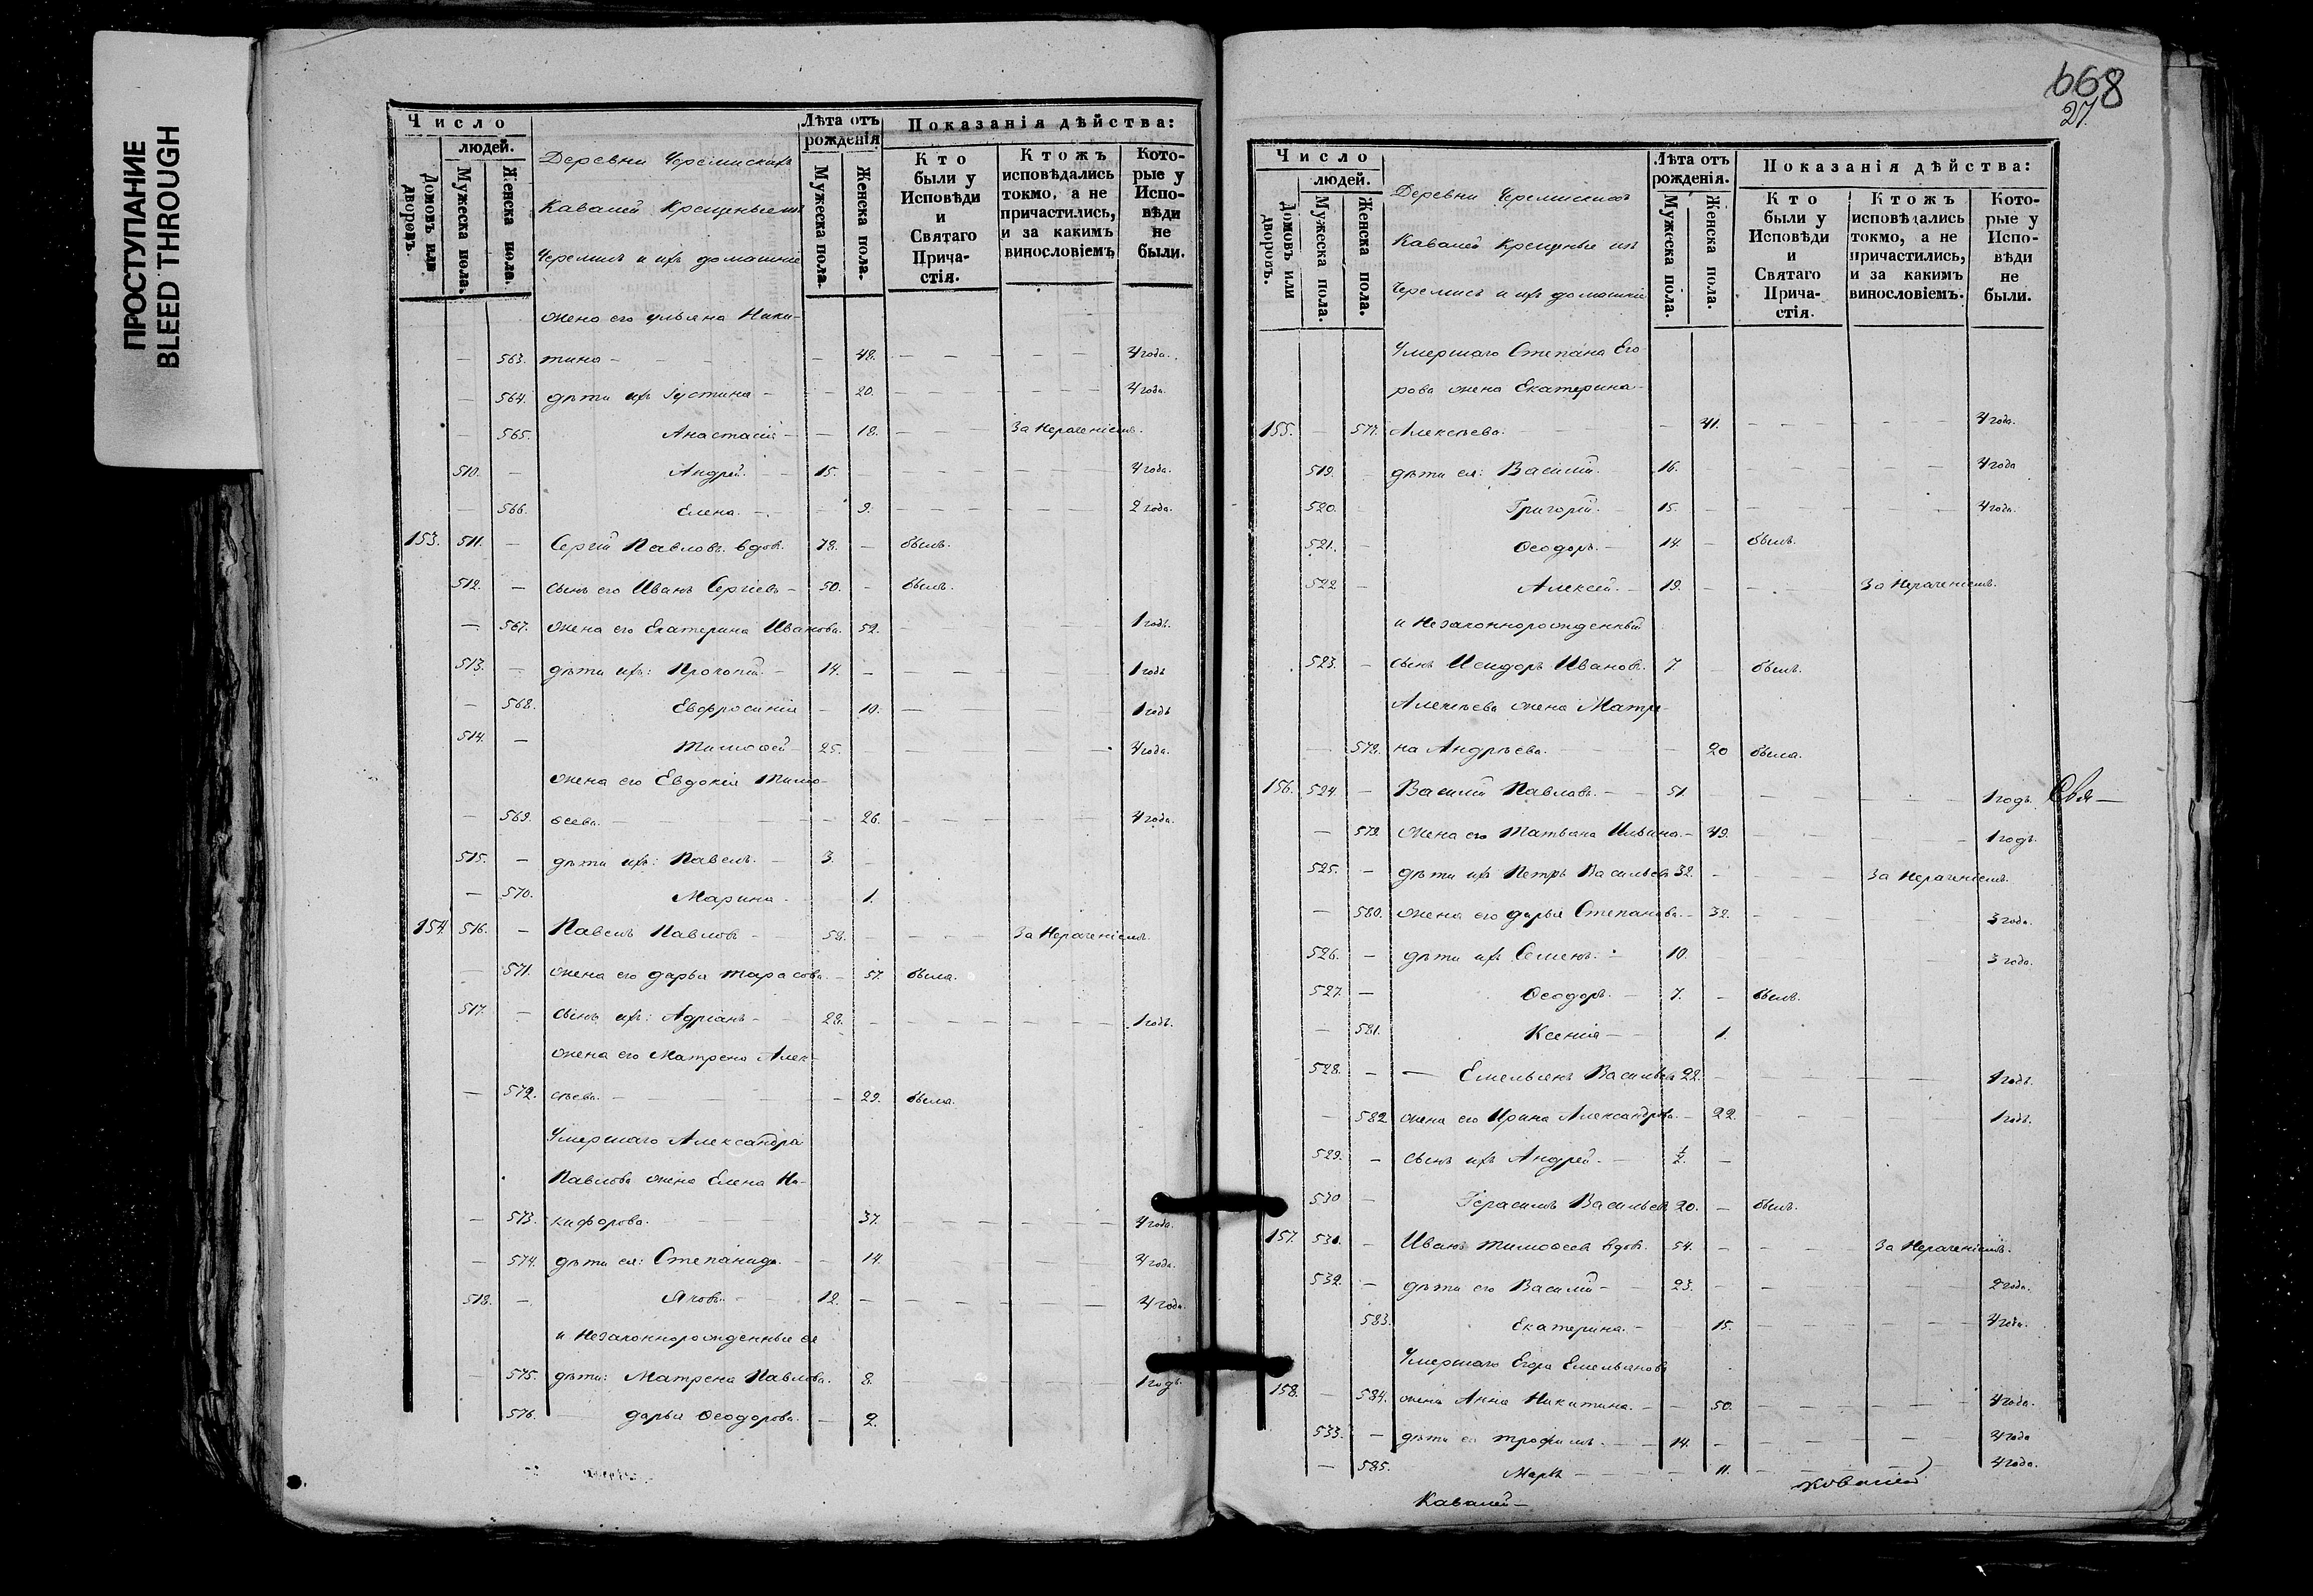 ПРОСТУПАНИЕ
BLEED THROUGH
Число
людей.
Домовъ или дворовъ.
Мужеска пола.
Женска пола.
Деревни Черемискихъ
Кавалей Крещеные изъ
Черемисъ и ихъ домашніе
Лѣта отъ рожденія
Мужеска пола.
Женска пола.
Показанія дѣйства:
Кто были у Исповѣди и Святаго Прича-стія.
Ктожъ исповѣдались токмо, а не причастились, и за какимъ винословіемъ
Кото-рые у Испо-вѣди не были.
жена его Ульяна Ники-
— 563. тина — — 48. — — — 4 года.
— 564. дѣти ихъ Іустина — — 20. — — — 4 года.
— 565. Анастасія — — 18. — — За Нераченіемъ.
510. — Андрей. — 15. — — — 4 года.
— 566. Елена. — — 9. — — — 2 года.
153. 511. — Сергій Павловъ вдов. 78. — былъ.
512. — сынъ его Иванъ Сергіевъ — 50. — былъ.
— 567. жена его Екатерина Иванова. 52. — — 1 годъ.
513. — дѣти ихъ: Прокопій. — 14. — — — 1 годъ
— 568. Евфросинія — 10. — — — 1 годъ
514. — Тимофей — 25. — — — 4 года.
жена его Евдокія Тимо-
— 569. ѳеева. — — 26. — — — 4 года.
515. — дѣти ихъ: Павелъ. — 3. —
— 570. Марина. — 1.
154. 516. — Павелъ Павловъ — 58. — — — За Нераченіемъ.
— 571. жена его Дарья Тарасова. — 57. была.
517. — сынъ ихъ: Адріанъ — 28. — — — 1 годъ.
жена его Матрена Алек-
— 572. сѣева. — — 29. была.
Умершаго Александра
Павлова жена Елена Ни-
— 573. кифорова. — 37. — — — 4 года.
— 574. дѣти ея: Степанида. — — 14. — 4 года.
518. — Яковъ. — 12. — — — 4 года.
и Незаконнорожденные ея
— 575. дѣти: Матрена Павлова. 8. — — — 1 годъ.
576. — Дарья Ѳеодорова. — 2.
668
27.
Число
людей.
Домовъ или дворовъ.
Мужеска пола.
Женска пола.
Деревни Черемискихъ
Кавалей Крещеные изъ
Черемисъ и ихъ домашніе
Лѣта отъ рожденія.
Мужеска пола.
Женска пола.
Показанія дѣйства:
Кто были у Исповѣди и Святаго Прича-стія.
Ктожъ исповѣдались токмо, а не причастились, и за какимъ винословіемъ.
Кото-рые у Испо-вѣди не были.
Умершаго Степана Его
рова жена Екатерина
155. — 577. Алексѣева. — 41. — — — 4 года.
519. — дѣти ея: Василій. — 16. — — — 4 года
520. Григорій. — 15. — — — 4 года.
521. — Ѳеодоръ. — 14. — былъ.
522 — Алексей. — 19. — — — За Нераченіемъ.
и Незаконнорожденный
523. — сынъ Исидоръ Ивановъ. 7. — былъ.
Алексѣева жена Матре
— 578. на Андрѣева. — 20 была.
156. 524 — Василій Павловъ. — 51. — — — 1 годъ.
— 579. жена его Татьяна Ильина. — 49. — — 1 годъ.
525. — дѣти ихъ Петръ Васильевъ 32. — — — За Нераченіемъ.
— 580. жена его Дарья Степанова. — 32. — — 3 года.
526. — дѣти ихъ Семенъ. 10. — — 3 года.
527. — Ѳеодоръ. — 7. — былъ.
— 581. Ксенія — 1.
528. — — Емельянъ Васильевъ 22. — — — 1 годъ.
— 582 жена его Ирина Александрова. — 22. — — 1 годъ.
529. — сынъ ихъ Андрей. — ½. —
530 — Герасимъ Васильевъ 20. — былъ.
157. 531. — Иванъ Тимоѳеевъ вдов. 54. — — — За Нераченіемъ.
532. — дѣти его Василій — 23. — — 2 года.
583. Екатерина. — 15. — — — 4 года.
Умершаго Егора Емельянова
158. — 584. жена Анна Никитина. — 50. — — — 4 года.
533. — дѣти ея Трофимъ. — 14. — — — 4 года
— 585. Марѳа — 11. — — — 4 года.
Кавалей —